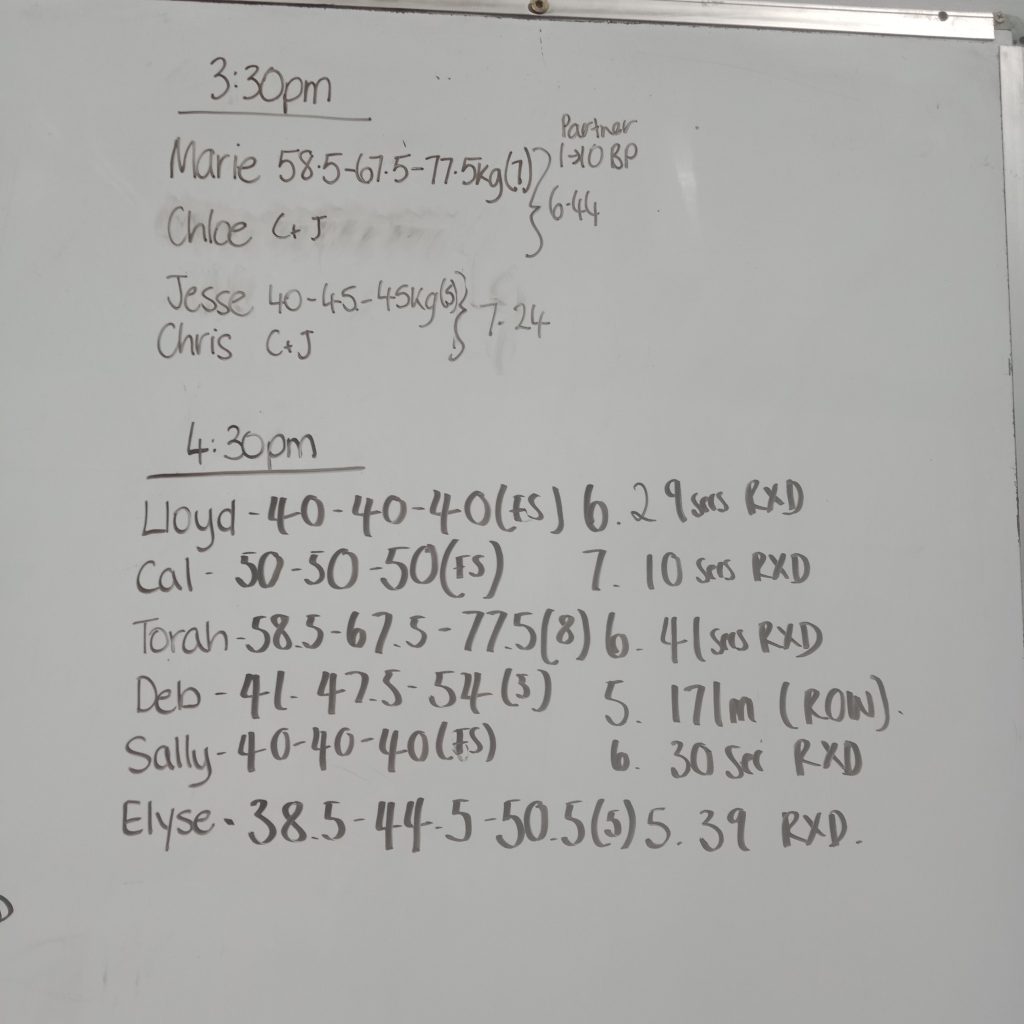 3:30pm
Partner
1→10 BP
Marie 58.5-67.5-77.5kg(7)
6.44
Chloe C+J
Jesse 40-45-45kg(5)
7.24
Chris C+J
4:30pm
Lloyd - 40-40-40(FS) 6.29secs RXD
Cal - 50-50-50(FS) 7.10 secs RXD
Torah - 58.5-67.5-77.5(8) 6.41secs RXD
Deb - 41. 47.5-54(5) 5. 171m (ROW).
Sally - 40-40-40(FS) 6. 30 Sec RXD
Elyse - 38.5-44.5-50.5(5) 5.39 RXD.